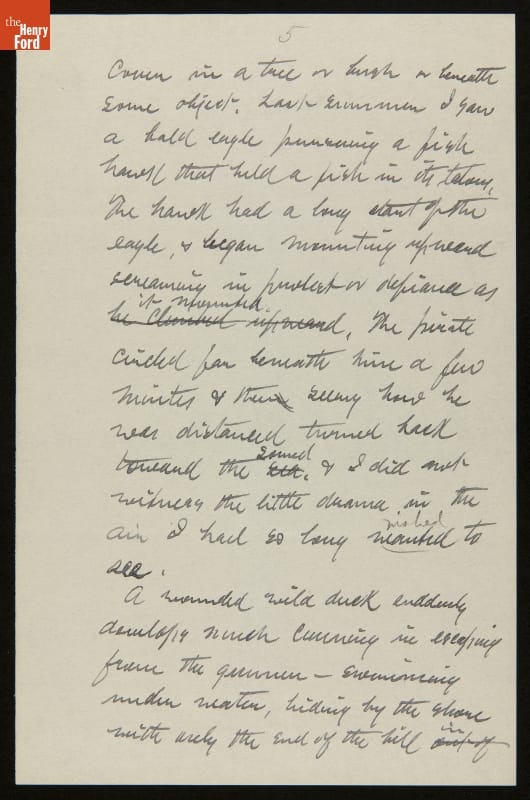 the
Henry
Ford
5
cover in a tree or bush or beneath
some object. Last summer I saw
a bald eagle pursuing a fish
hawk that held a fish in its talons.
The hawk had a long start of the
eagle, & began mounting upward
screaming in protest or defiance as
it mounted.
he climbed upward, The pirate
circled far beneath him a few
minutes & then seeing how he
was distanced turned back
toward the sea. & I did not
Sound
witness the little drama in the
air I had so long wanted to
wished
see.
A wounded wild duck suddenly
develops much cunning in escaping
from the gunner — swimming
under water, hiding by the shore
with only the end of the bill out of
in